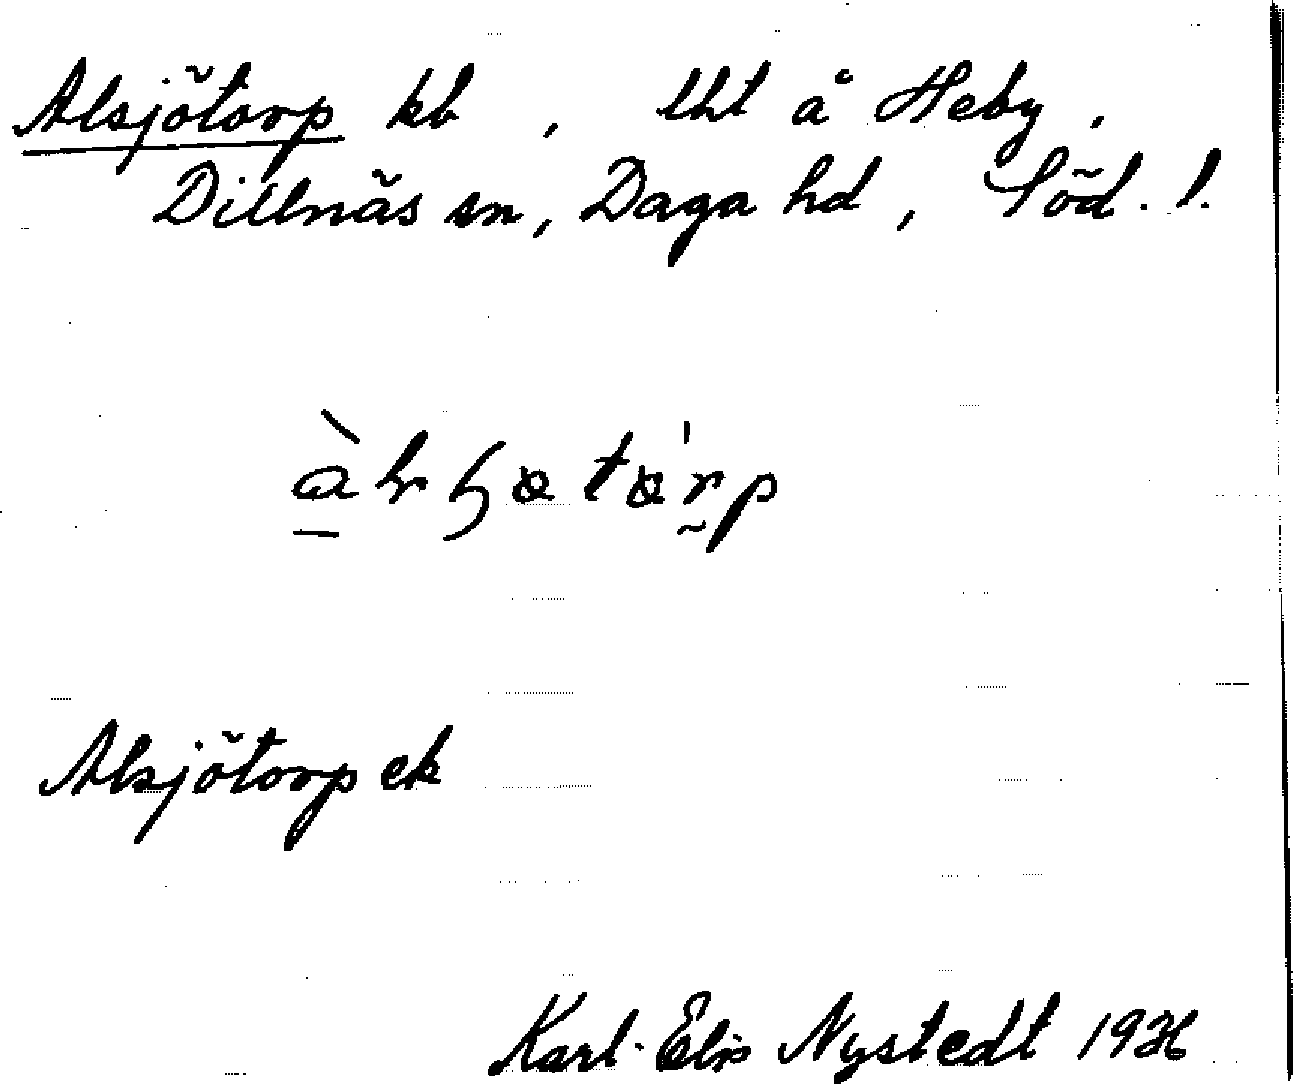 Alsjötorp kb, tht å Heby,
Dillnäs sn, Daga hd, Söd. l.
Alsjötorp ek
Karl-Elis Nystedt 1936